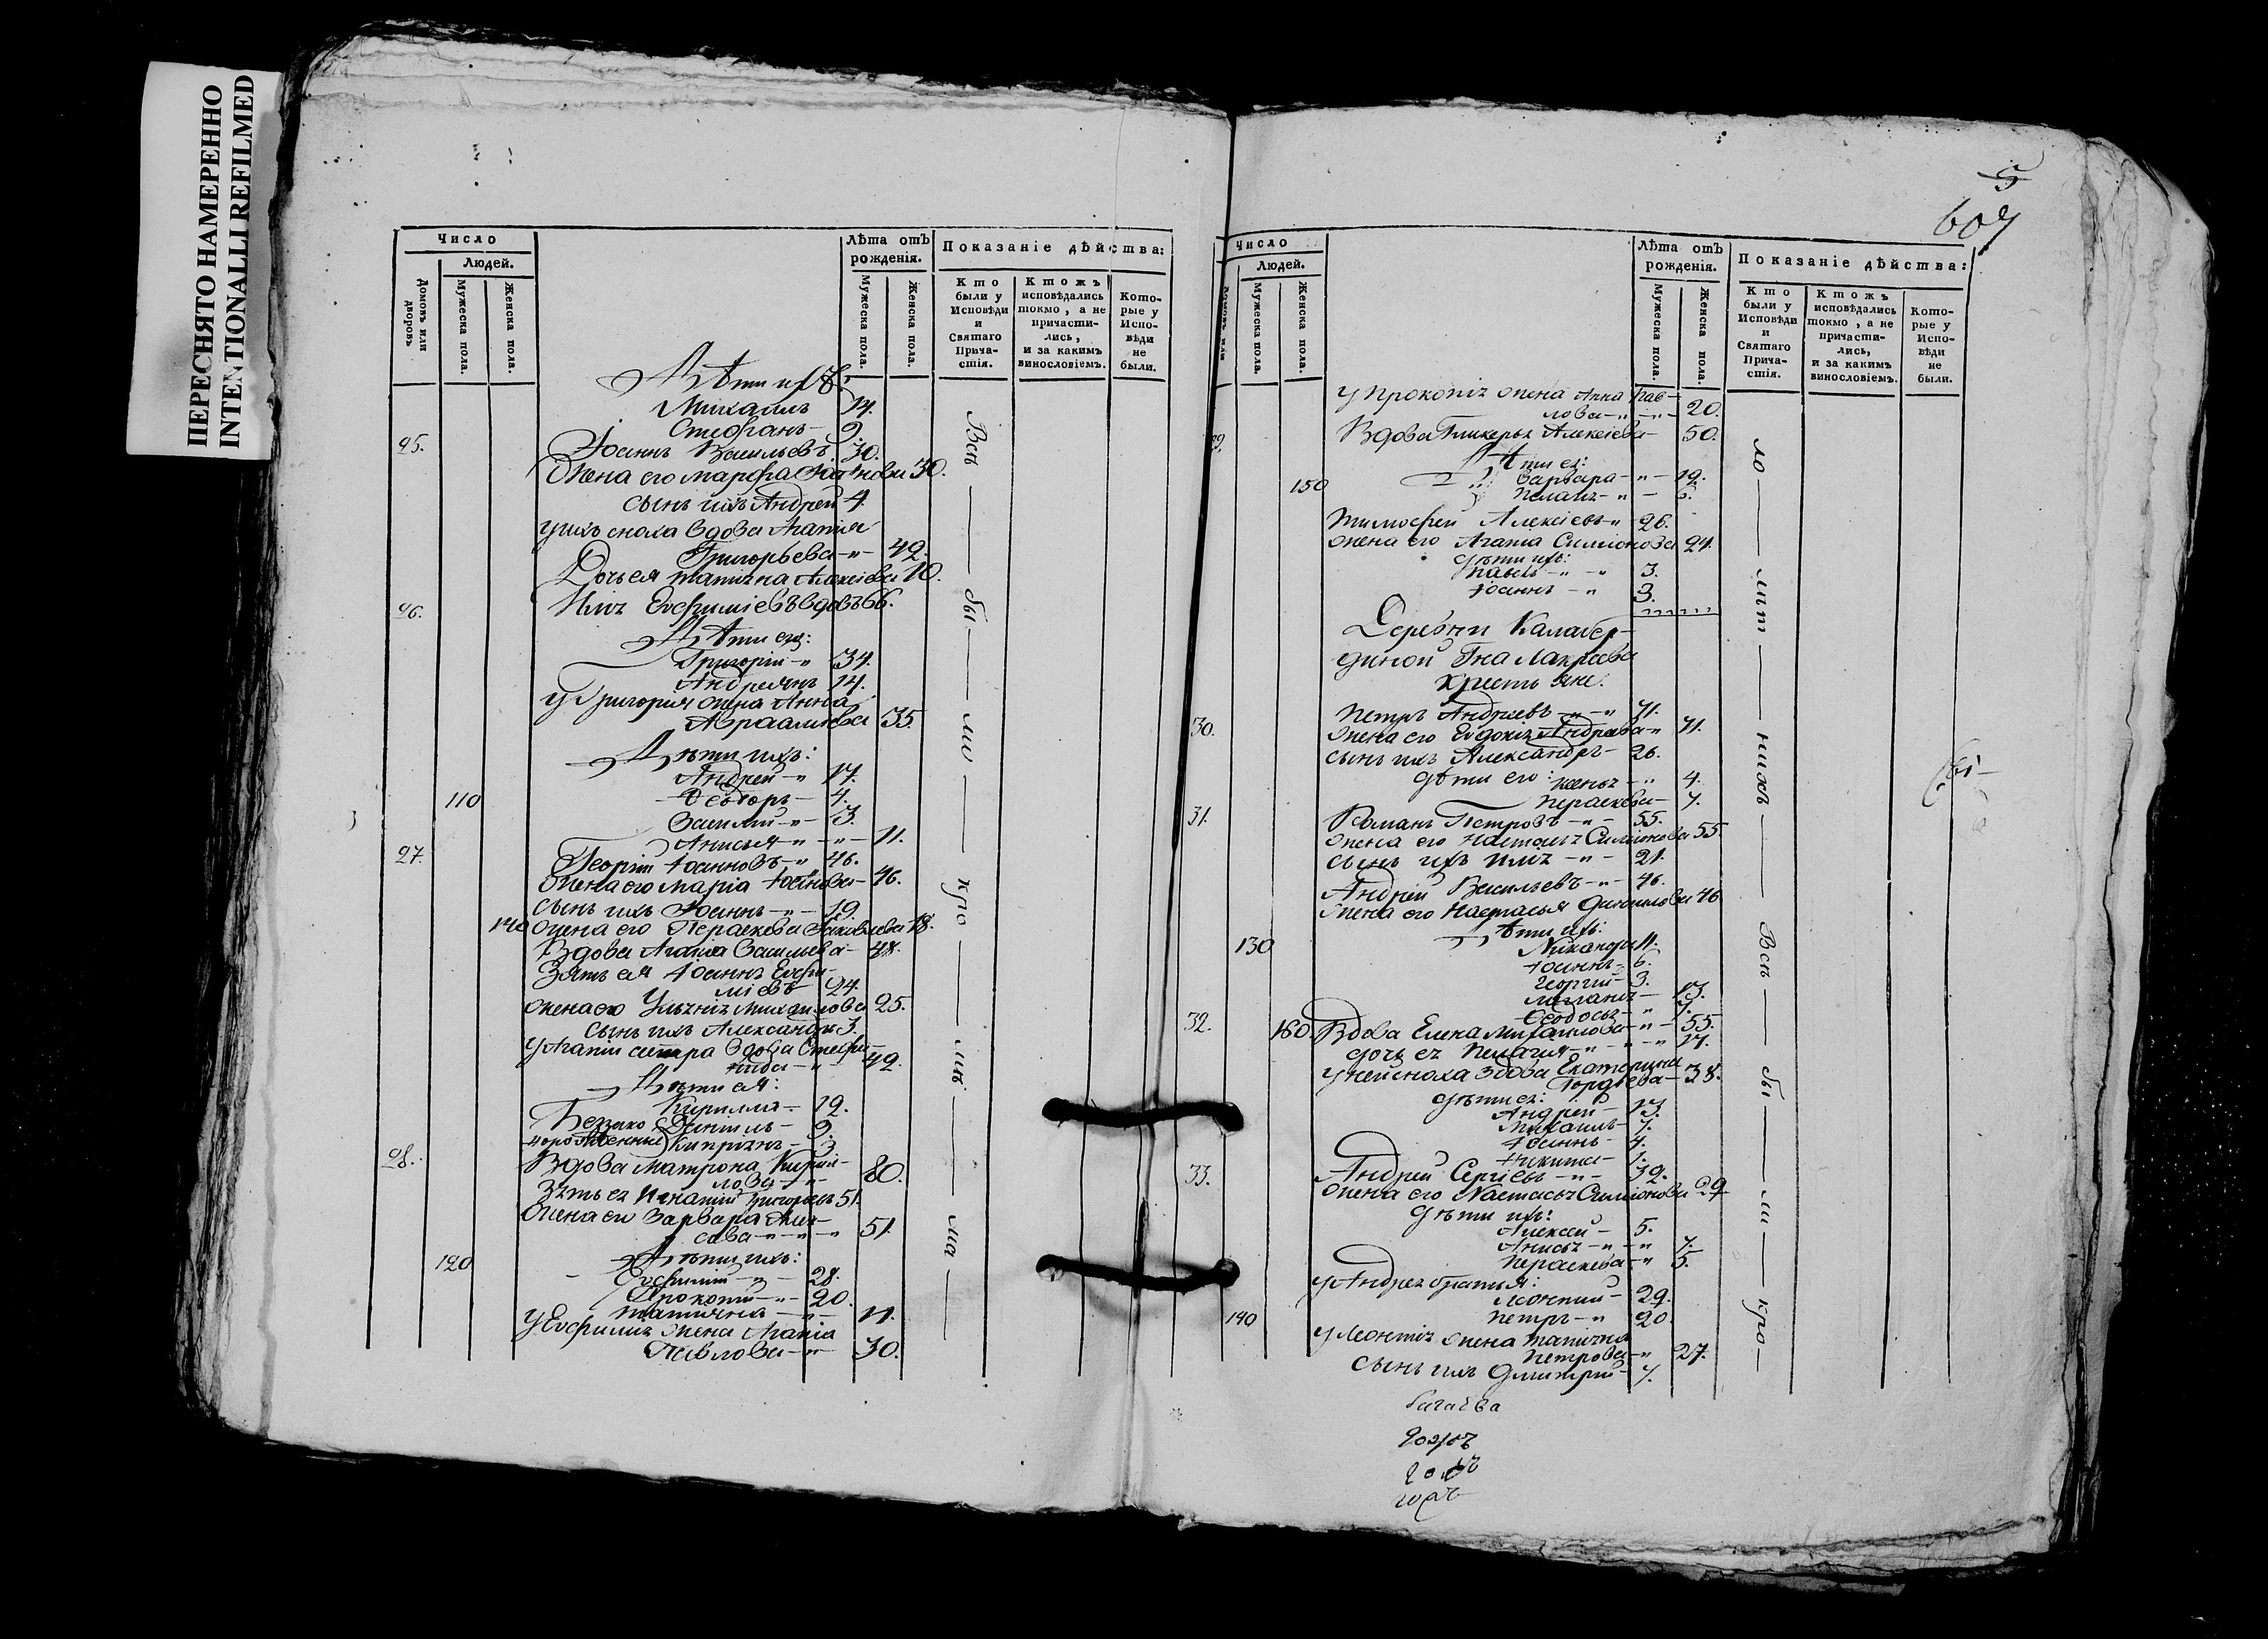 ПЕРЕСНЯТО НАМЕРЕННО
INTENTIONALLI REFILMED
Число
Людей.
Домовъ или дворовъ
Мужеска пола.
Женска пола.
Лѣта отъ рожденія.
Мужеска пола.
Женска пола.
Показаніе дѣйства:
Кто были у Исповѣди и Святаго Причастія.
Ктожъ исповѣдались токмо, а не причастились, и за какимъ винословіемъ.
Которые у Исповѣди не были.
Дѣти их:
Михаилъ 14.
Стефанъ 9
25. Іоаннъ Васильевъ 30.
Жена его Марфа 30.
сынъ ихъ Андрей 4.
у ихъ сноха вдова Агапія
Григорьева 42.
Дочь ея Татіяна Алексіева 10.
26. Илія Евфиміевъ вдовъ 66.
Дѣти его:
Григорій 34.
Андреянъ 14.
у Григорія жена Анна
Авраамова 35.
Дѣти ихъ:
Андрей 17.
110 Ѳеодоръ 4.
Василій 3.
Анисья 11.
27. Георгій Іоанновъ 46.
жена его Марія Іоанова 46.
сынъ ихъ Іоаннъ 19.
140 жена его Пераскева Іаковлева 18.
Вдова Агапія Васильева 48.
Зять ея Іоаннъ Евфи-
міевъ 24.
жена его Улянія Михаилова 25.
сынъ ихъ Александръ 3.
у Агапіи сестра вдова Стефа-
нида 42.
Дѣти ея:
Кириллъ 12.
Беззако Даніилъ 9.
норожденніи Кипріянъ 3
28. Вдова Матрона Кирил-
лова 80.
Зять ея Игнатій Григорьевъ 51.
Жена его Варвара
51.
120 Дѣти ихъ:
Евфимій 28.
Прокопій 20.
Татіяна 11.
у Евфимія жена Агапія
Павлова 30.
Всѣ — бы — ли — кро — мѣ — ма —
5
607
Число
Людей.
Мужеска пола.
Женска пола.
Лѣта отъ рожденія.
Мужеска пола.
Женска пола.
Показаніе дѣйства:
Кто были у Исповѣди и Святаго Причастія.
Ктожъ исповѣдались токмо, а не причастились, и за какимъ винословіемъ.
Которые у Исповѣди не были.
у Прокопія жена Анна Пав-
лова 20.
29. Вдова Гликерья Алексіева 50.
Дѣти ея:
Варвара 19.
150 6.
Тимофей Алексіевъ 26.
жена его Агапіа Симіонова 24.
дѣти ихъ:
Павелъ 3.
Іоаннъ 3.
Деревни
крестьяне.
30. Петръ Андреевъ 71.
жена его Евдокія Андреева 71.
сынъ ихъ Александръ 26.
дѣти его: 4.
Пераскева 7.
31. Романъ Петровъ 55.
жена его Настасья Симіонова 55
сынъ ихъ Илія 21.
Андрей Васильевъ 46.
жена его Настасья Даниилова 46
Дѣти ихъ:
130 Никаноръ 11.
Іоаннъ 6.
Георгій 3.
13.
Ѳеодосья 7.
32. 160 Вдова Елена Михаилова 55.
дочь ея Пелагия 17.
у ней сноха вдова Екатерина
Гордѣева 38.
дѣти ея:
Андрей 13.
Михаилъ 7.
Іоаннъ 4.
Никита 1.
33. Андрей Сергіевъ 32.
жена его Настасья Симіонова 29
дѣти ихъ:
Алексей 5.
Анисья 7.
Пераскева 5.
у Андрея братья:
Леонтий 29.
140 Петръ 20.
у Леонтія жена Татіяна
Петрова 27.
сынъ ихъ Дмитрий 7.
ло — лѣт — нихъ — Всѣ — бы — ли — кро —